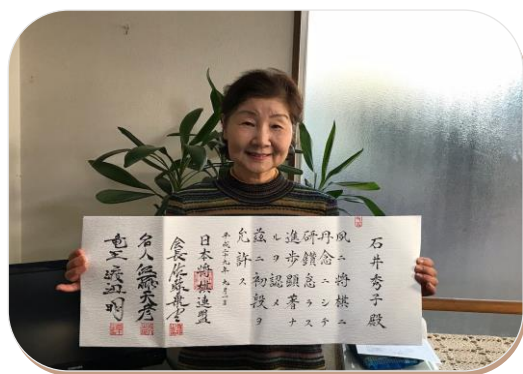 石井秀子殿
夙ニ将棋ニ
丹念ニシテ
研鑽怠ラス
進歩顕著ナ
ルヲ認メ
茲ニ初段ヲ
允許ス
平成二十九年九月
日本将棋連盟
会長佐藤康光
名人佐藤天彦
竜王渡辺明